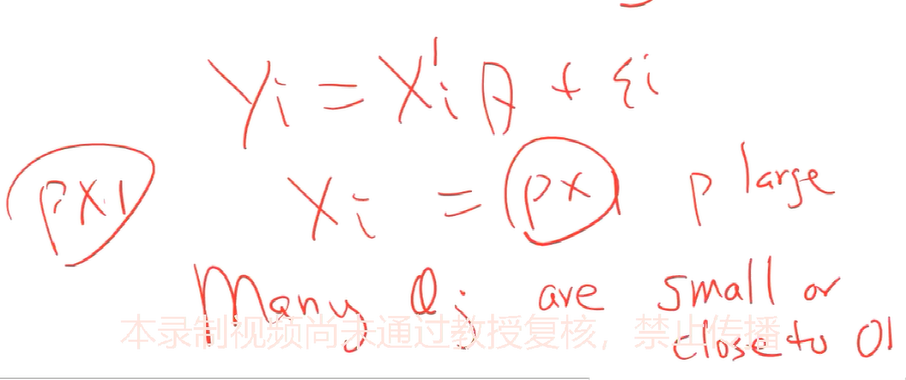 Yi = X'i θ + εi
p×1 Xi = p×1 p large
Many θj are small or
close to 0!
本录制视频尚未通过教授复核，禁止传播